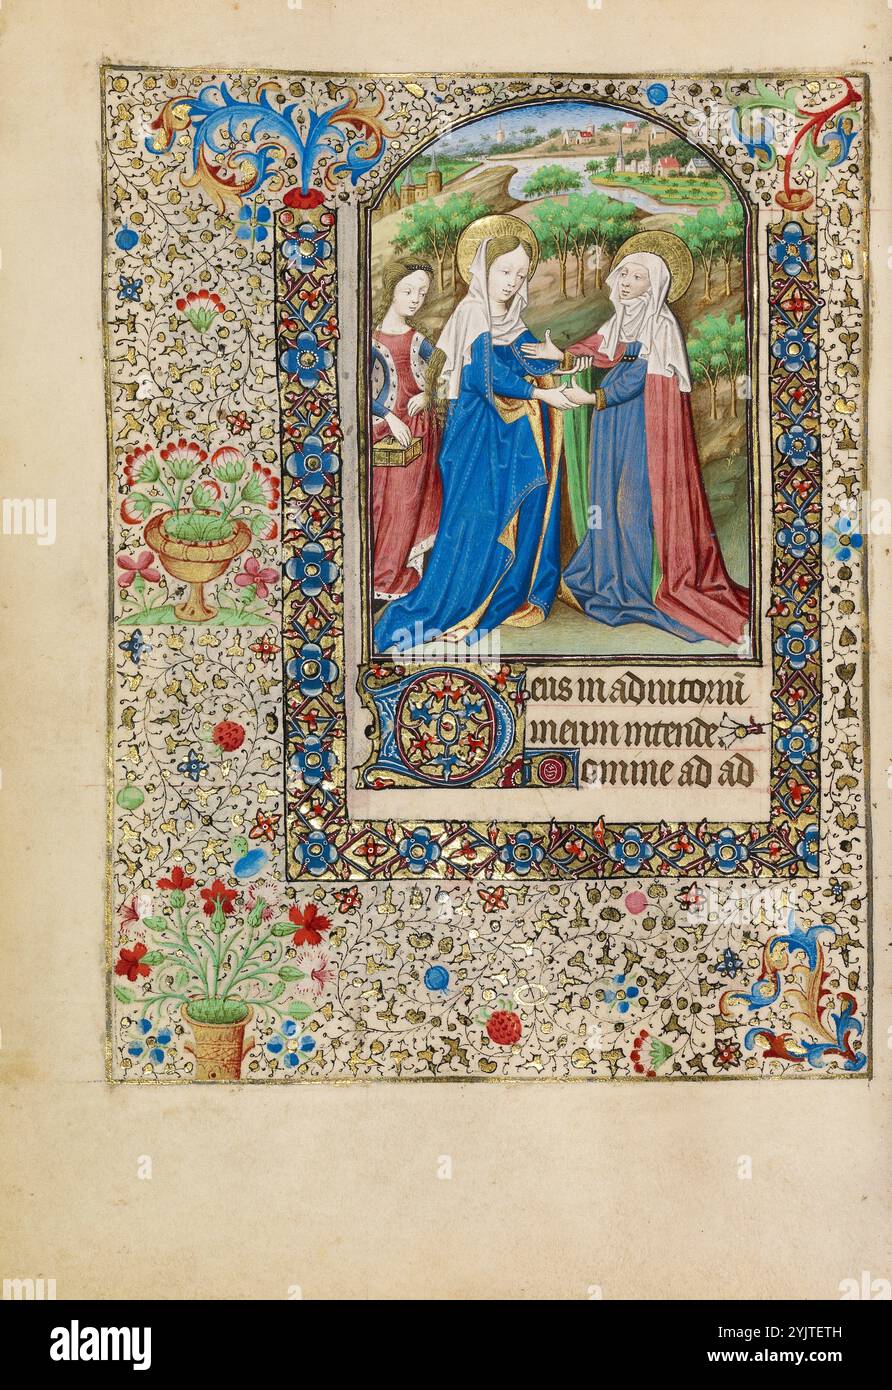 Deus in adiutoriū
meum intende
Domine ad ad
alamy
Image ID: 2YJTETH
www.alamy.com